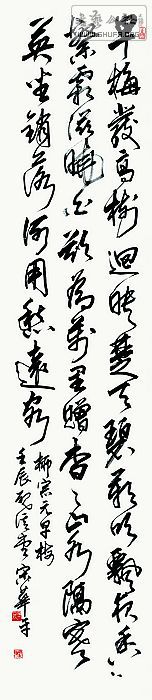 早梅發高樹迥映楚天碧朔吹飄夜香
繁霜滋曉白欲為萬里贈杳杳山水隔寒
英坐銷落何用慰遠客
柳宗元早梅
壬辰